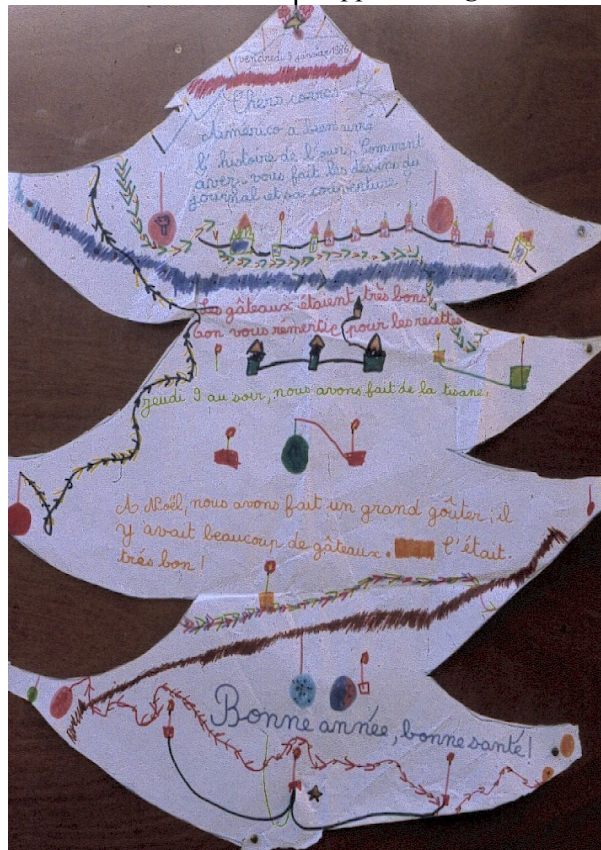 vendredi 3 janvier 1986
Chers corres
Américo a bien aimé
l'histoire de l'ours. Comment
avez-vous fait les dessins du
journal et sa couverture ?
Les gâteaux étaient très bons,
on vous remercie pour les recettes
jeudi 9 au soir, nous avons fait de la tisane.
A Noël, nous avons fait un grand goûter ; il
y avait beaucoup de gâteaux. C'était
très bon !
Bonne année, bonne santé !